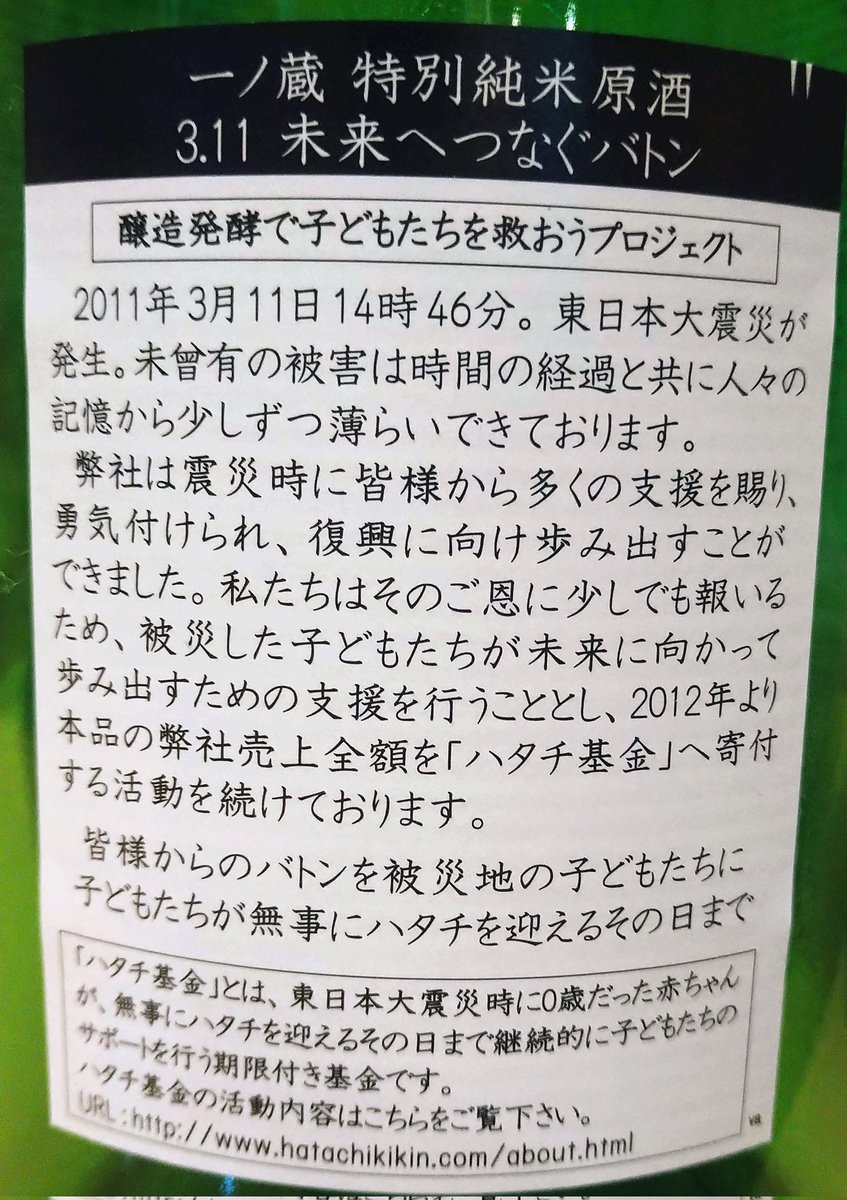 一ノ蔵 特別純米原酒
3.11 未来へつなぐバトン
醸造発酵で子どもたちを救おうプロジェクト
2011年3月11日14時46分。東日本大震災が
発生。未曾有の被害は時間の経過と共に人々の
記憶から少しずつ薄らいできております。
弊社は震災時に皆様から多くの支援を賜り、
勇気付けられ、復興に向け歩み出すことが
できました。私たちはそのご恩に少しでも報いる
ため、被災した子どもたちが未来に向かって
歩み出すための支援を行うこととし、2012年より
本品の弊社売上全額を「ハタチ基金」へ寄付
する活動を続けております。
皆様からのバトンを被災地の子どもたちに
子どもたちが無事にハタチを迎えるその日まで
「ハタチ基金」とは、東日本大震災時に0歳だった赤ちゃん
が、無事にハタチを迎えるその日まで継続的に子どもたちの
サポートを行う期限付き基金です。
ハタチ基金の活動内容はこちらをご覧下さい。
URL:http://www.hatachikikin.com/about.html